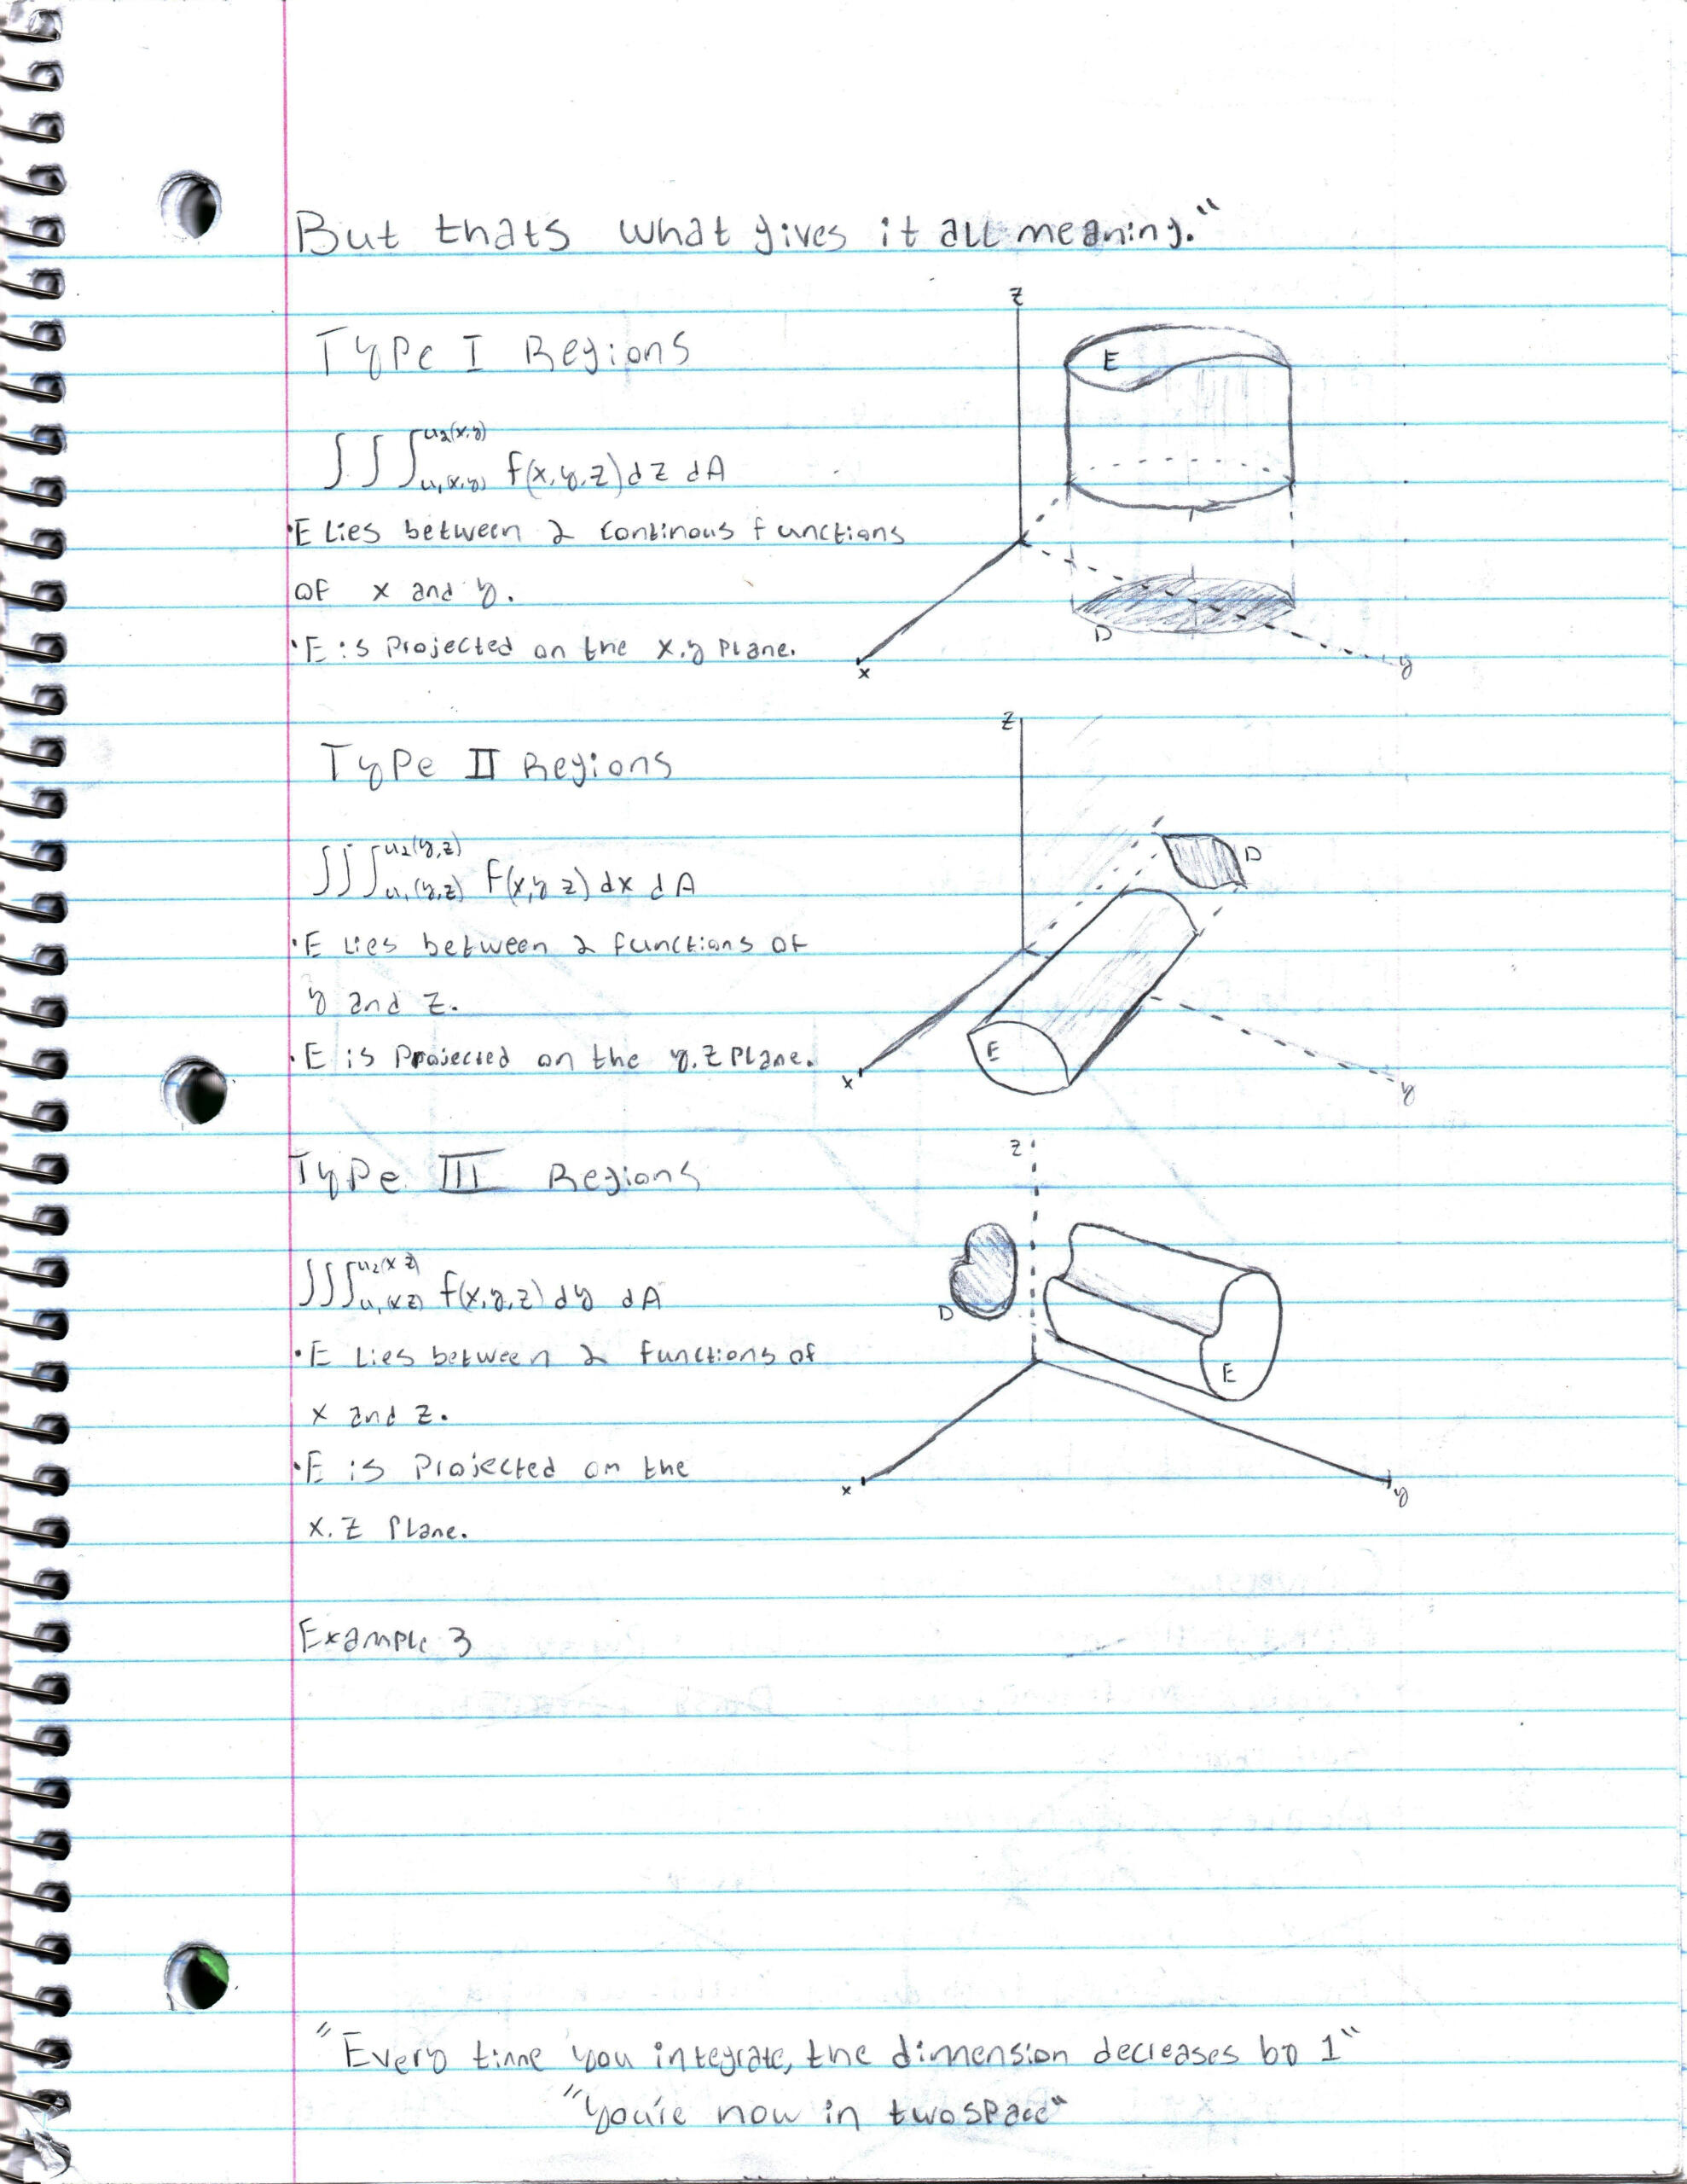 But thats what gives it all meaning."
Type I Regions
∫∫∫ u₁(x,y) u₂(x,y) f(x,y,z) dz dA
•E Lies between 2 continous functions
of x and y.
•E is Projected on the x,y Plane.
z
E
D
x
y
Type II Regions
∫∫∫ u₁(y,z) u₂(y,z) f(x,y z) dx dA
•E Lies between 2 functions of
y and z.
•E is Projected on the y,z Plane.
z
D
E
x
y
Type III Regions
∫∫∫ u₁(x z) u₂(x z) f(x,y,z) dy dA
•E Lies between 2 functions of
x and z.
•E is Projected on the
x,z Plane.
z
D
E
x
y
Example 3
"Every time you integrate, the dimension decreases by 1"
"You're now in twospace"